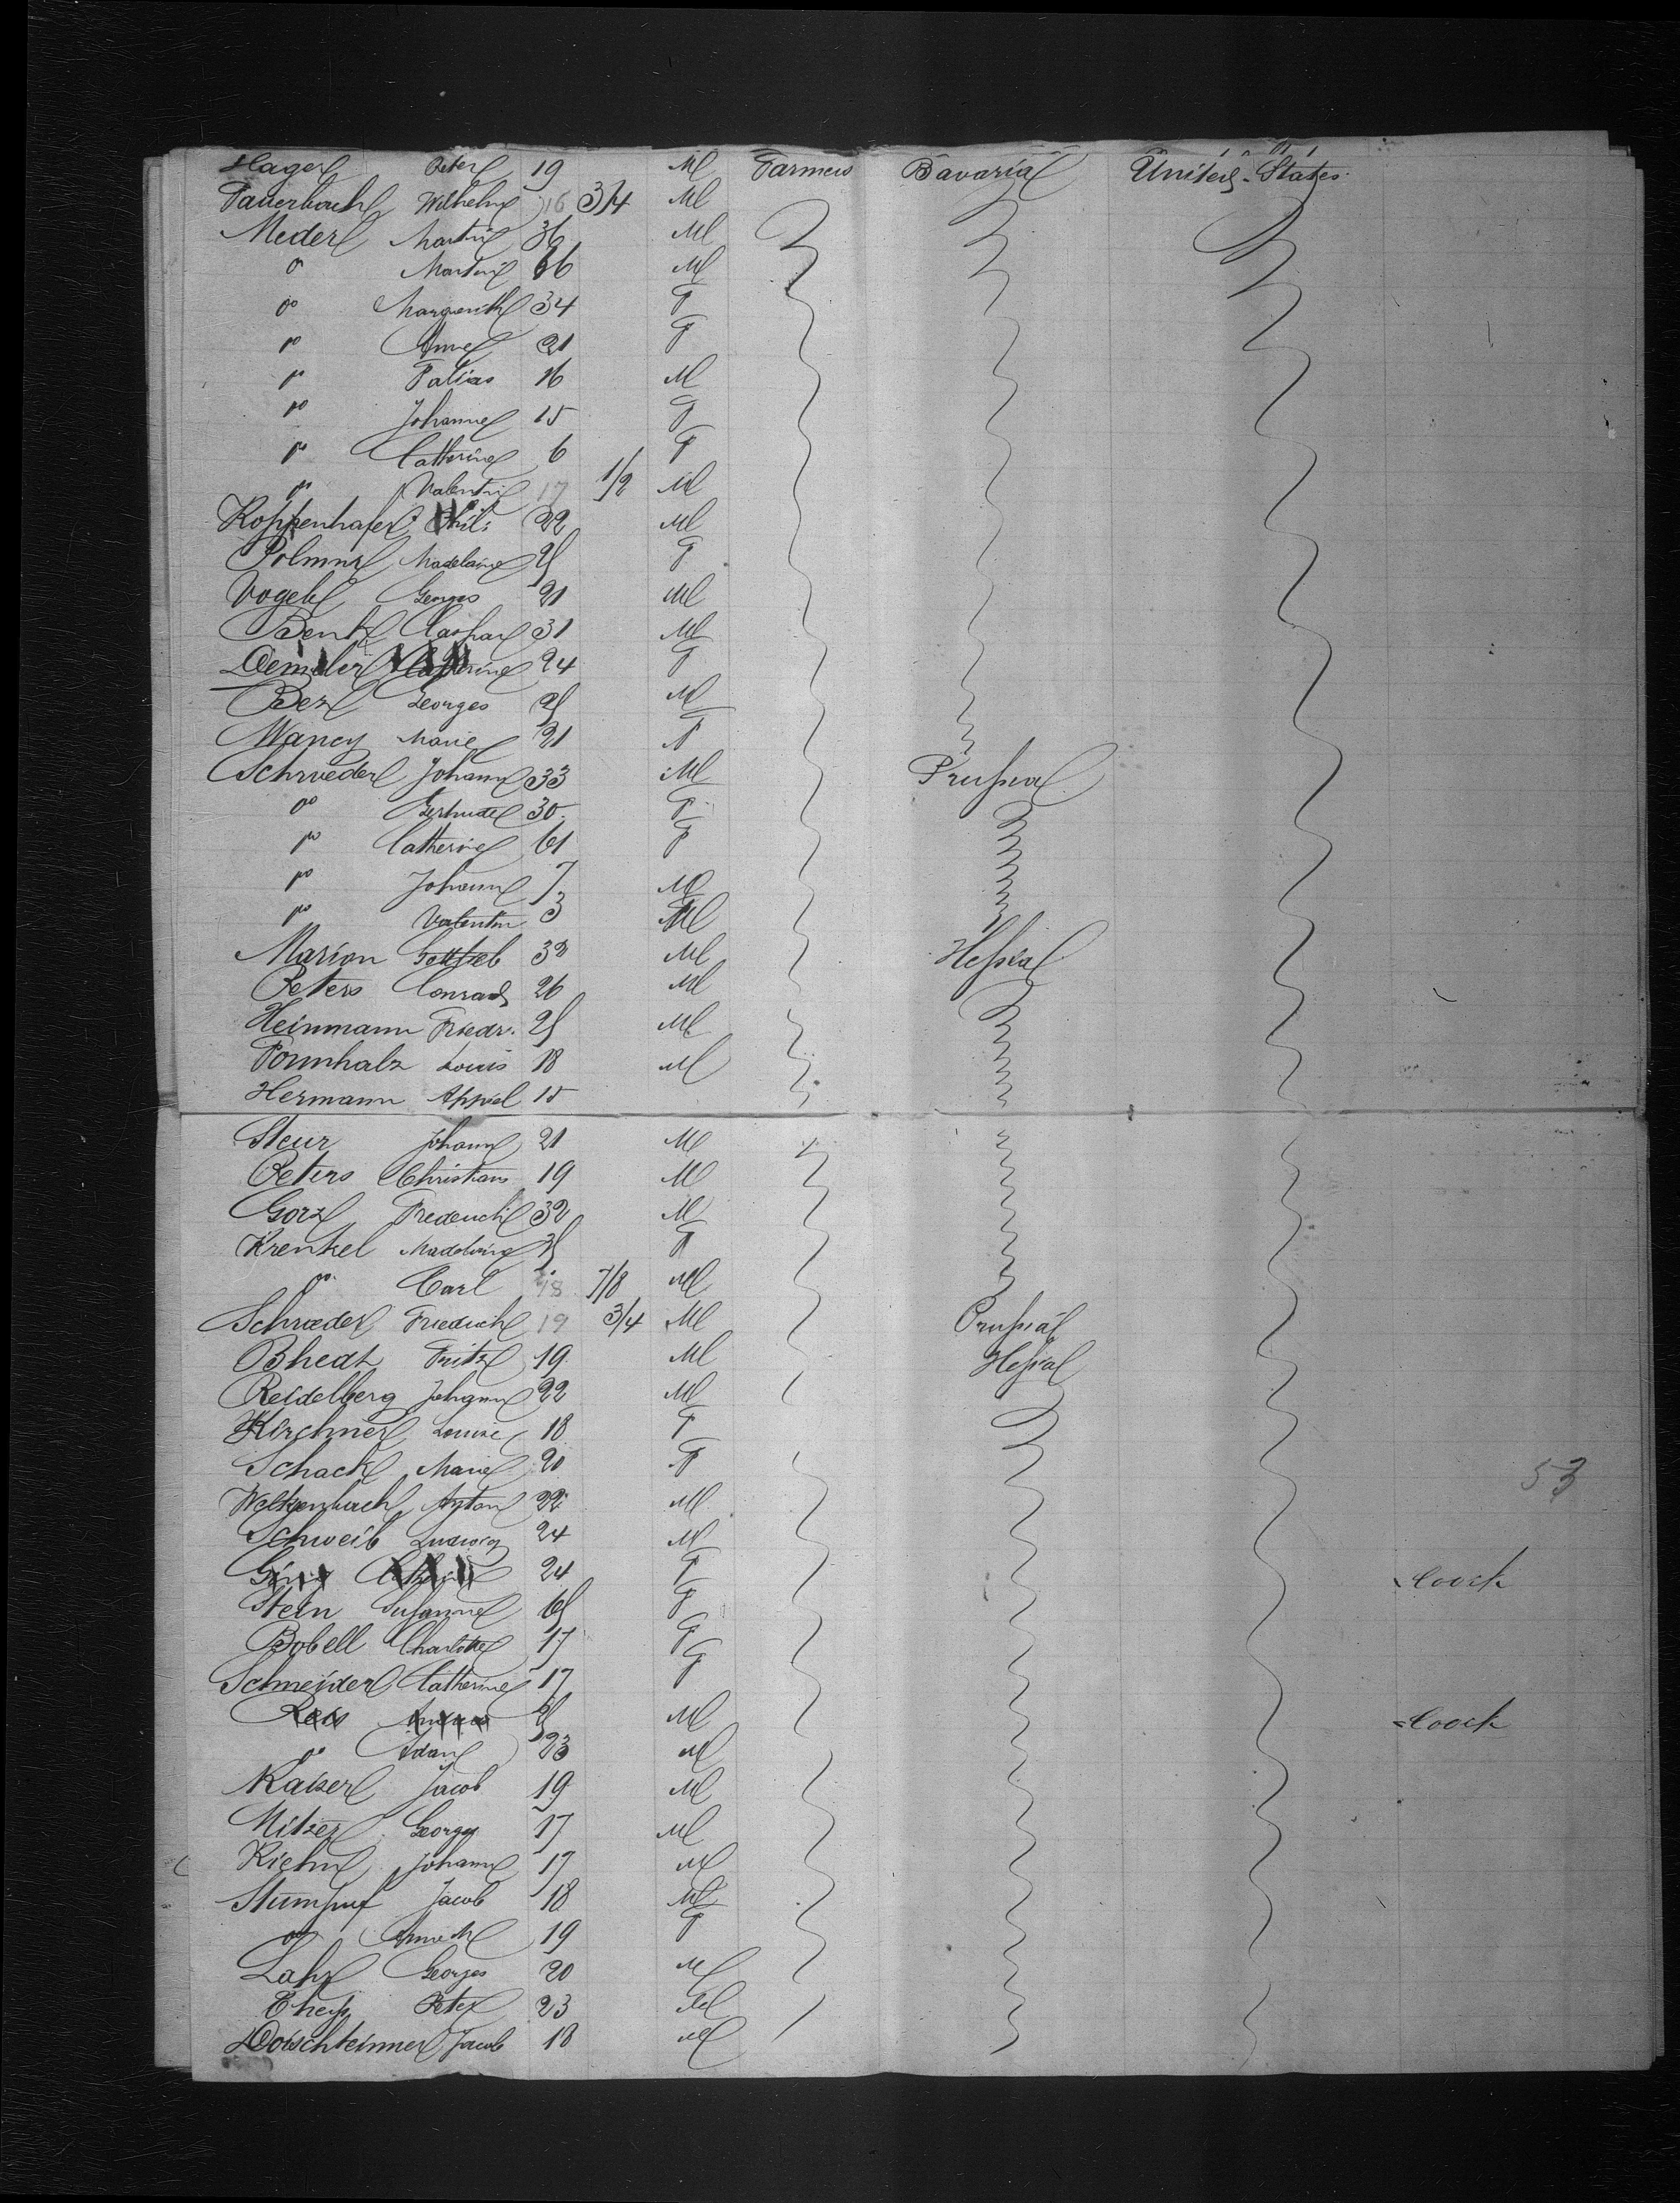 Hager Peter 19 M Farmers Bavaria United States
Fauerbach Wilhelm 16 3/4 M
Meder Martin 36 M
" Martin 66 M
" Margarith 34 F
" Anne 21 F
" 16 M
" Johanne 15 F
" Catherine 6 F
" Valentin 17 1/2 M
Koppenhafer Phil: 22 M
Madelaine 25 F
Vogel Georges 21 M
Bentz Caspar 31 M
Catherine 24 F
Bez Georges 25 M
Wancy Marie 21 F
Schroeder Johann 33 M Prussia
" Gertrude 30 F
" Catherine 61 F
" Johann 7 M
" Valentin 3 M
Marion Gottlieb 32 M Hessia
Peters Conrad 26 M
Heinmann Friedr. 25 M
Louis 18 M
Hermann Appel 15
Steur Johann 21 M
Peters Christian 19 M
Gorz Frederich 32 M
Krenkel Madelaine 35 F
" Carl 18 7/8 M
Schroeder Friedrich 19 3/4 M Prussia
Fritz 19 M Hessia
Reidelberg Johann 22 M
Kirchner Louise 18 F
Schack Marie 20 F
Welkenbach Anton 22 M
Schweib Ludwig 24 M
24 F Coock
Stein Susanne 65 F
Bobell Charlotte 17 F
Schneider Catherine 17 F
Reis M Coock
" Adam 23 M
Kaiser Jacob 19 M
Mitzer George 17 M
Kiehn Johann 17 M
Stumpf Jacob 18 M
" 19 F
Lahr Georges 20 M
Peter 23 M
Dorschteimer Jacob 18 M
53